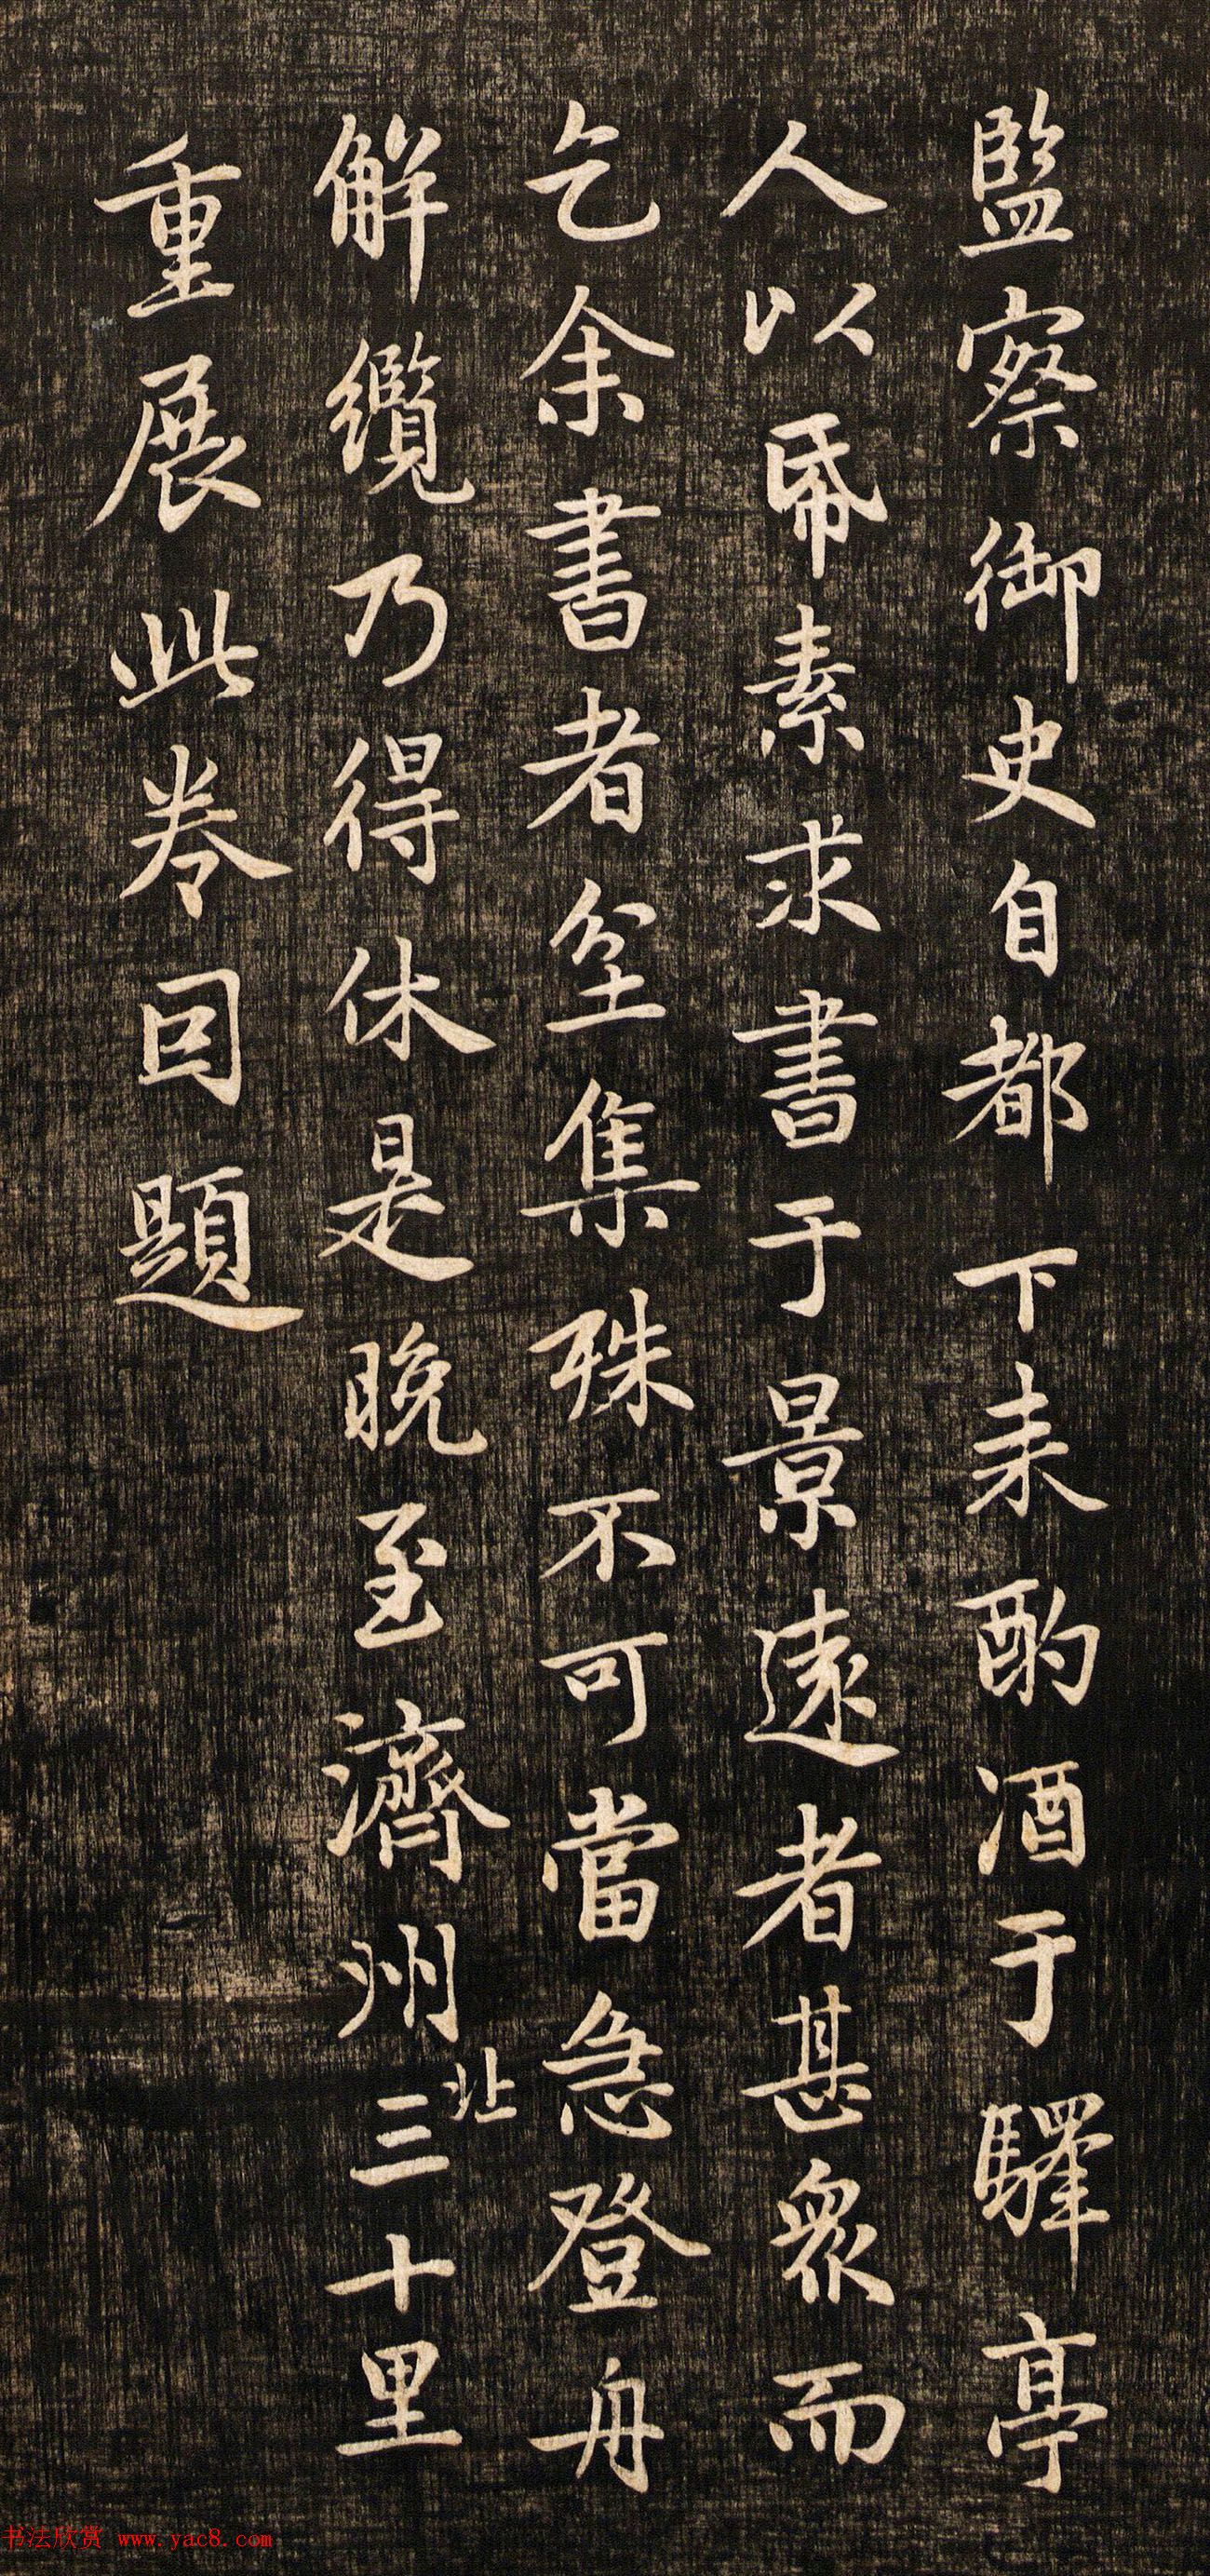 監察御史自都下来酌酒于驛亭
人以帋素求書于景遠者甚衆而
乞余書者坌集殊不可當急登舟
解纜乃得休是晚至濟州北三十里
重展此卷囙題
书法欣赏 www.yac8.com